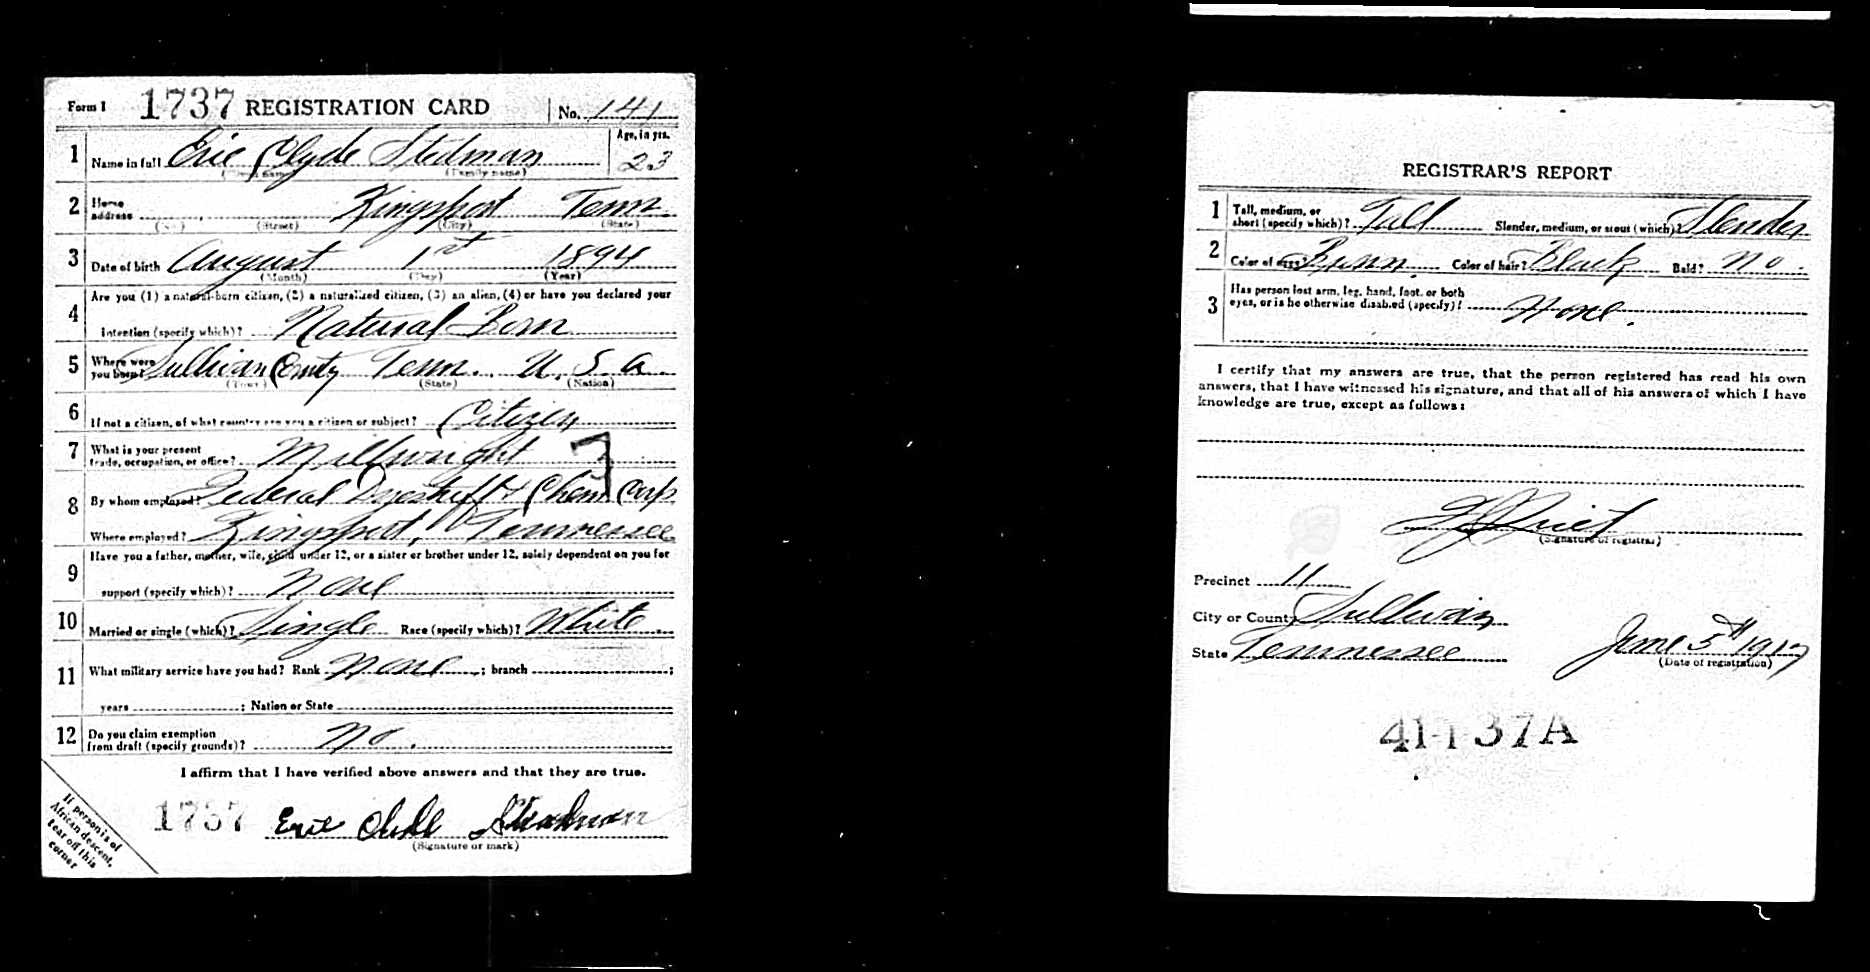 Form 1 1737 REGISTRATION CARD No. 141
Age, in yrs.
1 Name in full Eric Clyde Stedman 23
(Given name) (Family name)
2 Home address Kingsport Tenn.
(No.) (Street) (City) (State)
3 Date of birth August 1st 1894
(Month) (Day) (Year)
Are you (1) a natural-born citizen, (2) a naturalized citizen, (3) an alien, (4) or have you declared your
4 intention (specify which)? Natural Born
5 Where were you born? Sullivan County Tenn. U. S. a.
(Town) (State) (Nation)
6 If not a citizen, of what country are you a citizen or subject? Citizen
7 What is your present
trade, occupation, or office? Millwright
8 By whom employed? Federal Dyestuff & Chem Corp
Where employed? Kingsport, Tennessee
Have you a father, mother, wife, child under 12, or a sister or brother under 12, solely dependent on you for
9 support (specify which)? None
10 Married or single (which)? Single Race (specify which)? White
11 What military service have you had? Rank None ; branch ;
years ; Nation or State
12 Do you claim exemption
from draft (specify grounds)? No.
I affirm that I have verified above answers and that they are true.
1737 Eric Clyde
(Signature or mark)
If person is of
African descent,
tear off this
corner
REGISTRAR'S REPORT
1 Tall, medium, or
short (specify which)? Tall Slender, medium, or stout (which)? Slender
2 Color of eyes? Brown. Color of hair? Black Bald? No.
3 Has person lost arm, leg, hand, foot, or both
eyes, or is he otherwise disabled (specify)? None.
I certify that my answers are true, that the person registered has read his own
answers, that I have witnessed his signature, and that all of his answers of which I have
knowledge are true, except as follows:
(Signature of registrar)
Precinct 11
City or County Sullivan
State Tennessee June 5th 1917
(Date of registration)
41-1 37A